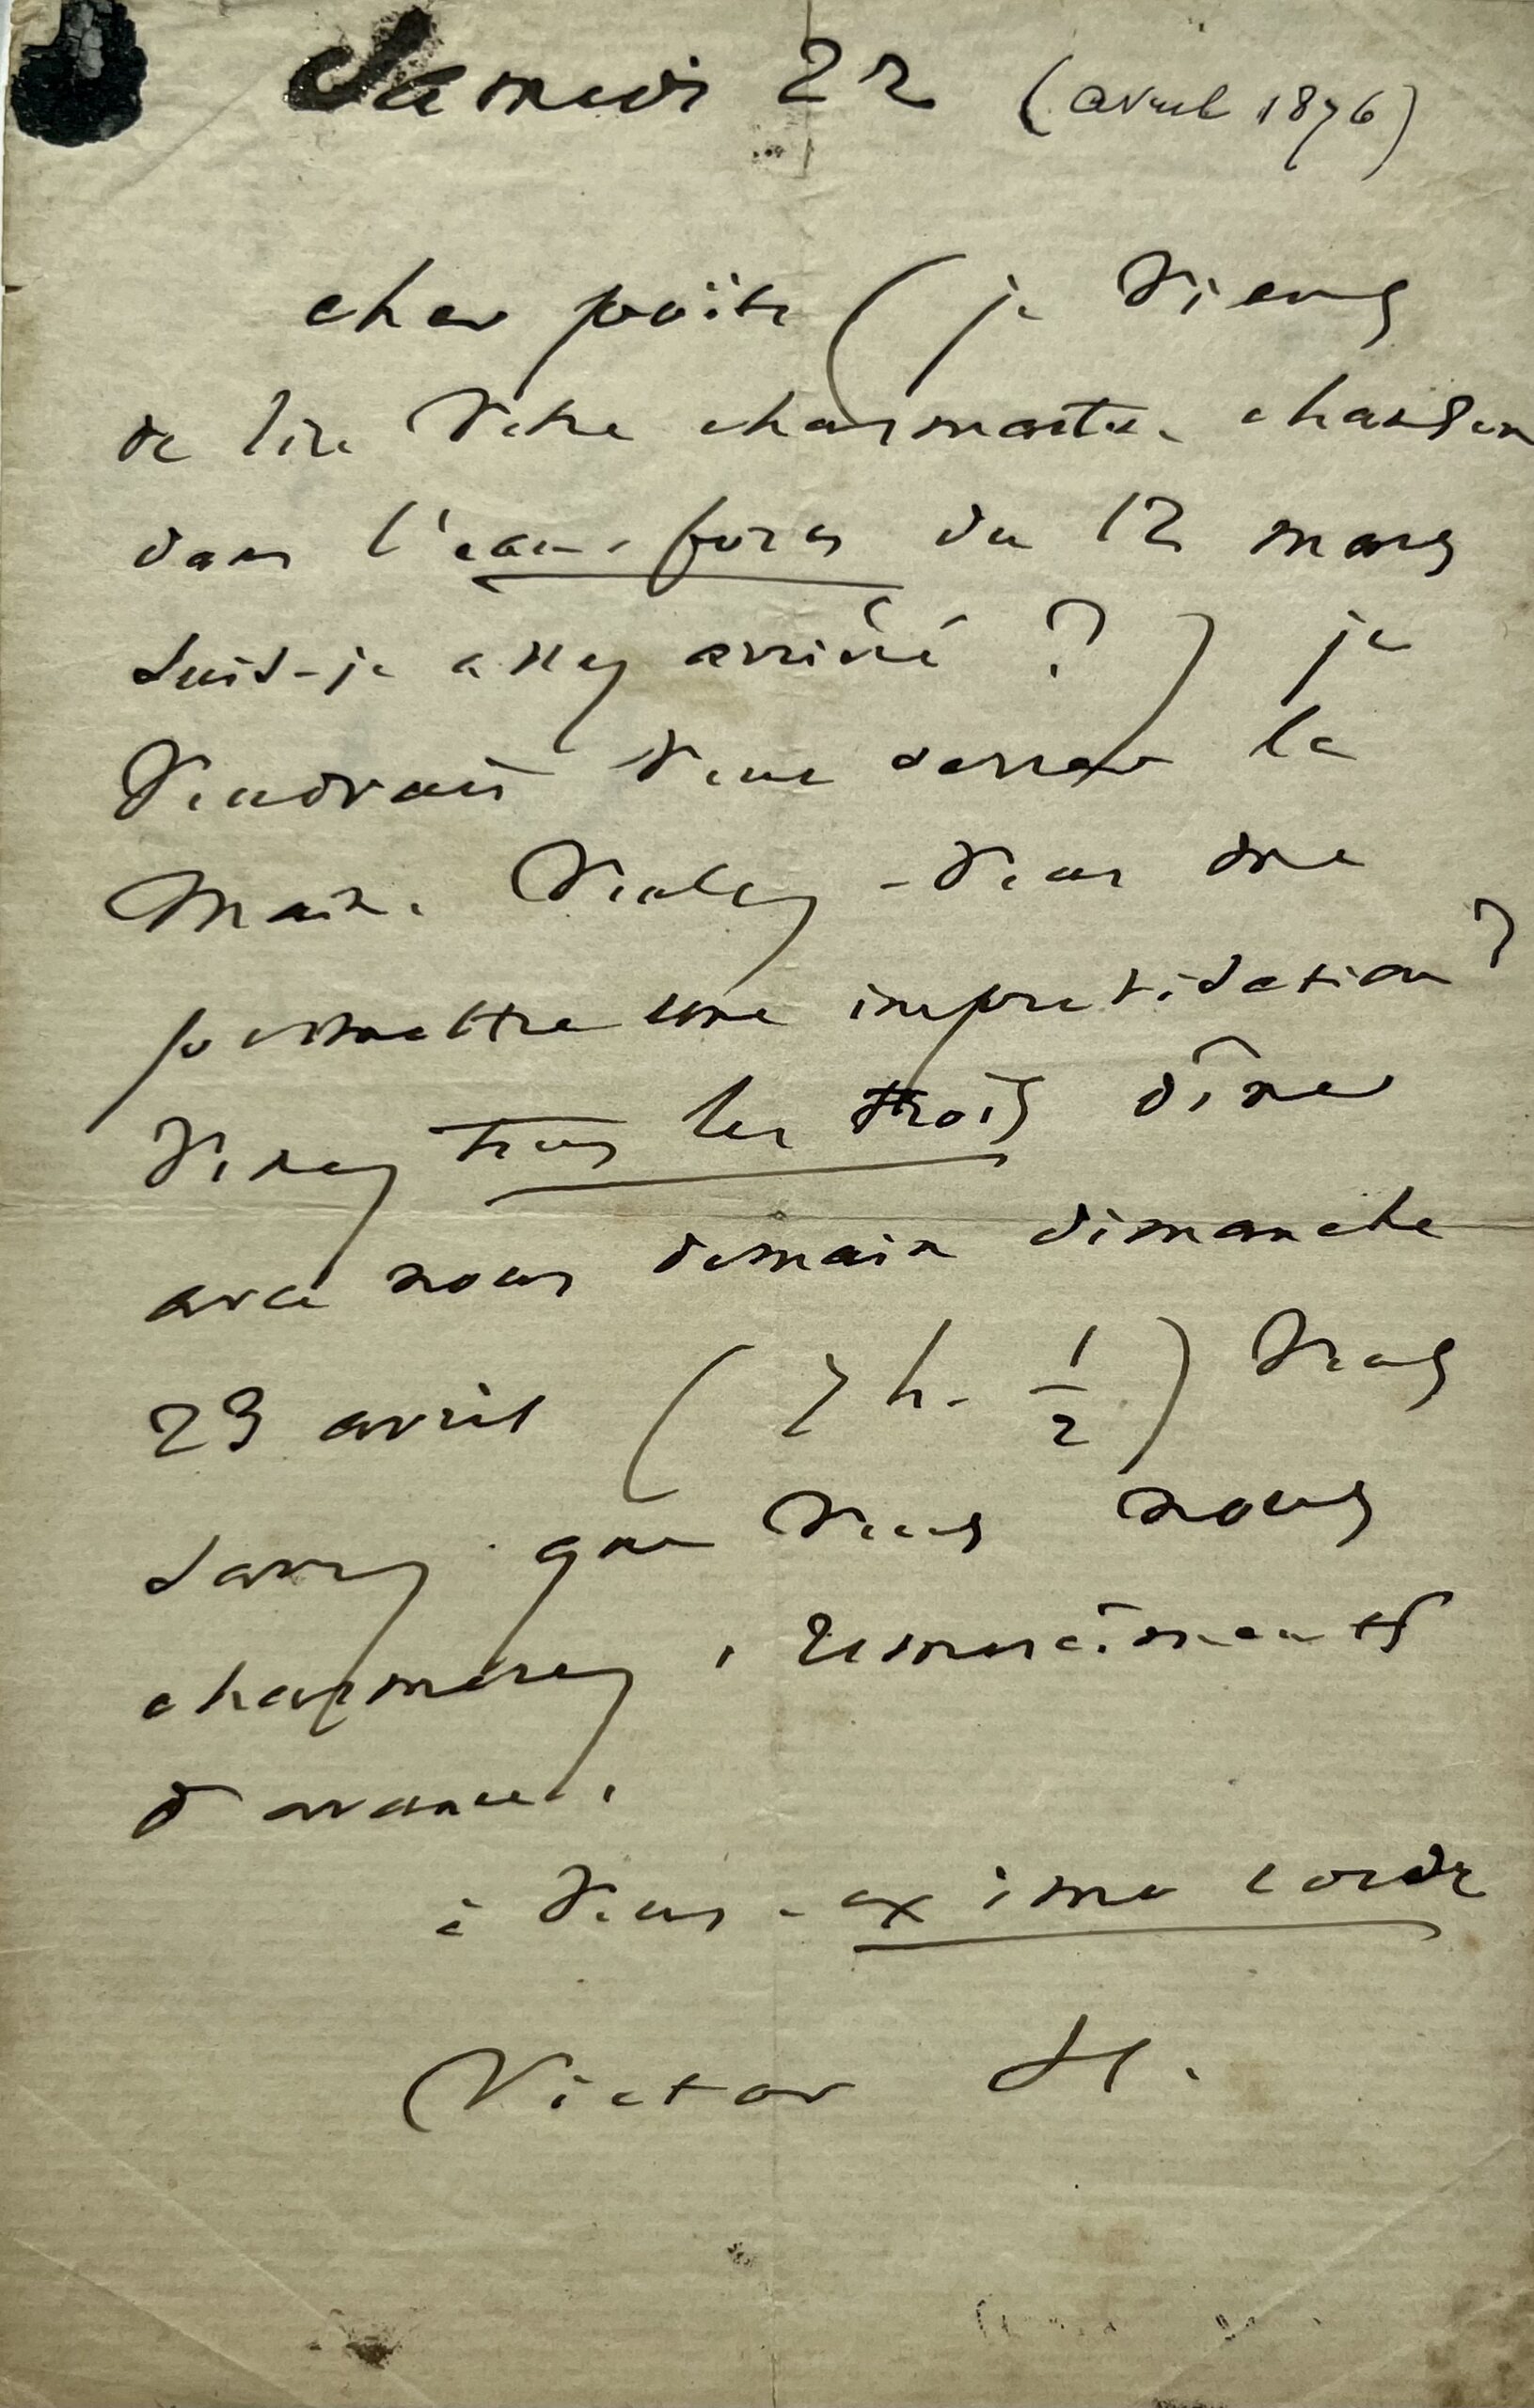 Samedi 22 (avril 1876)
cher poëte (je viens
de lire votre charmante chanson
dans l'eau-forte du 12 mars
suis-je assez arriéré ?) je
voudrais vous serrer la
main. Voulez-vous me
permettre une improvisation ?
Venez tous les trois dîner
avec nous demain dimanche
23 avril (7 h. 1/2) vous
savez que vous nous
charmerez, remercîments
d'avance.
à vous - ex imo corde
Victor H.